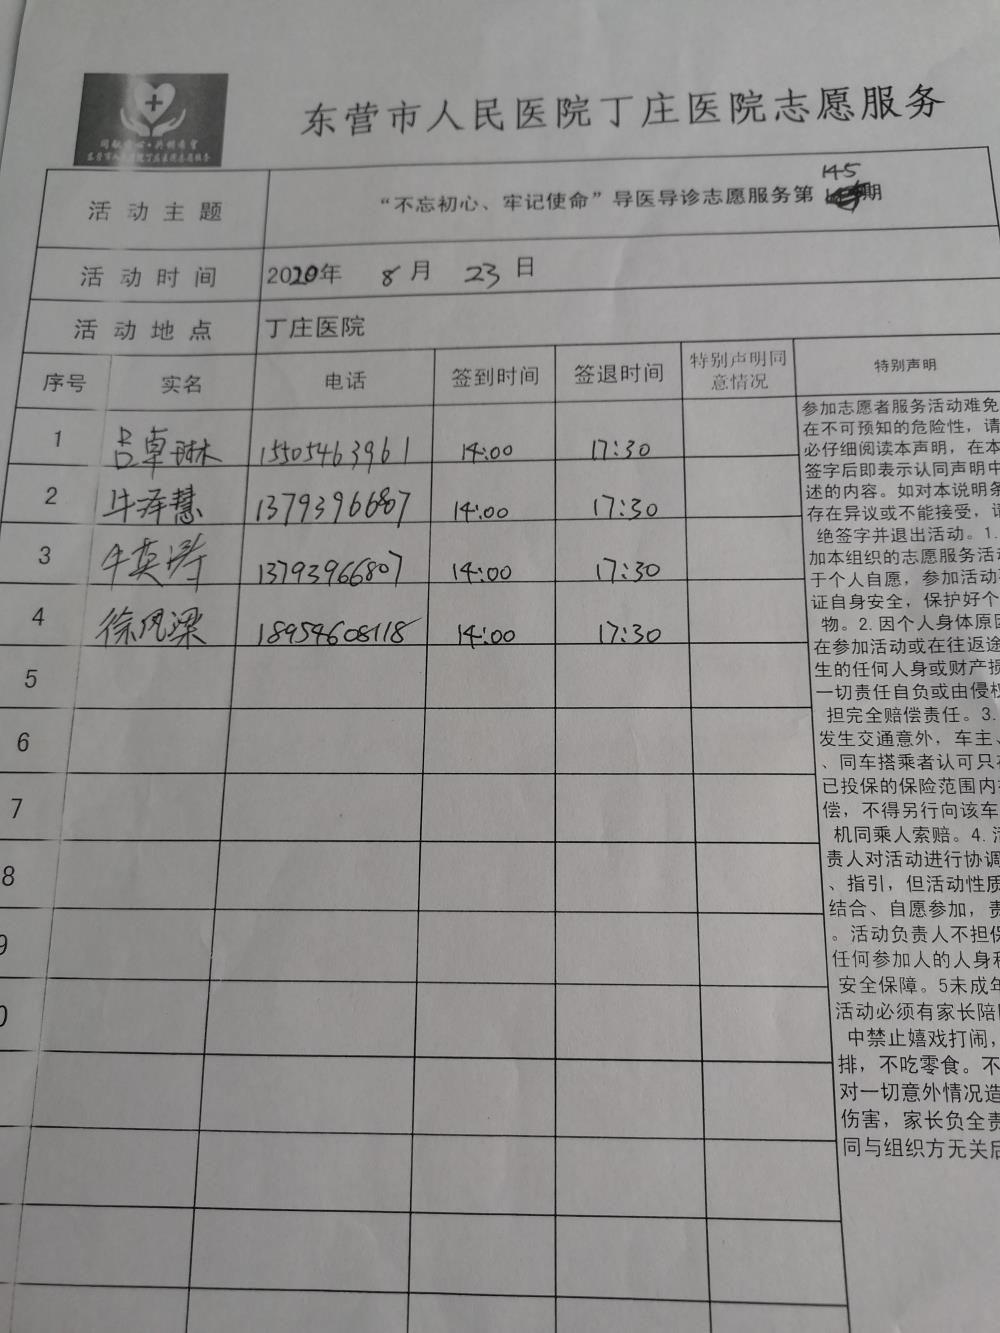 东营市人民医院丁庄医院志愿服务
活动主题 “不忘初心、牢记使命”导医导诊志愿服务第145期
活动时间 2020年 8月 23日
活动地点 丁庄医院
序号 实名 电话 签到时间 签退时间 特别声明同意情况 特别声明
1 吕卓琳 15505463961 14:00 17:30
2 牛泽慧 13793966807 14:00 17:30
3 牛英 13793966807 14:00 17:30
4 徐凤梁 18954608118 14:00 17:30
5
6
7
8
9
0
参加志愿者服务活动难免
在不可预知的危险性，请
必仔细阅读本声明，在本
签字后即表示认同声明中
述的内容。如对本说明条
存在异议或不能接受，请
绝签字并退出活动。1.
加本组织的志愿服务活动
于个人自愿，参加活动
证自身安全，保护好个
物。2.因个人身体原因
在参加活动或在往返途
生的任何人身或财产损
一切责任自负或由侵权
担完全赔偿责任。3.
发生交通意外，车主、
、同车搭乘者认可只在
已投保的保险范围内
偿，不得另行向该车
机同乘人索赔。4.活
责人对活动进行协调
、指引，但活动性质
结合、自愿参加，责
。活动负责人不担保
任何参加人的人身和
安全保障。5未成年
活动必须有家长陪
中禁止嬉戏打闹，
排，不吃零食。不
对一切意外情况造
伤害，家长负全责
同与组织方无关后